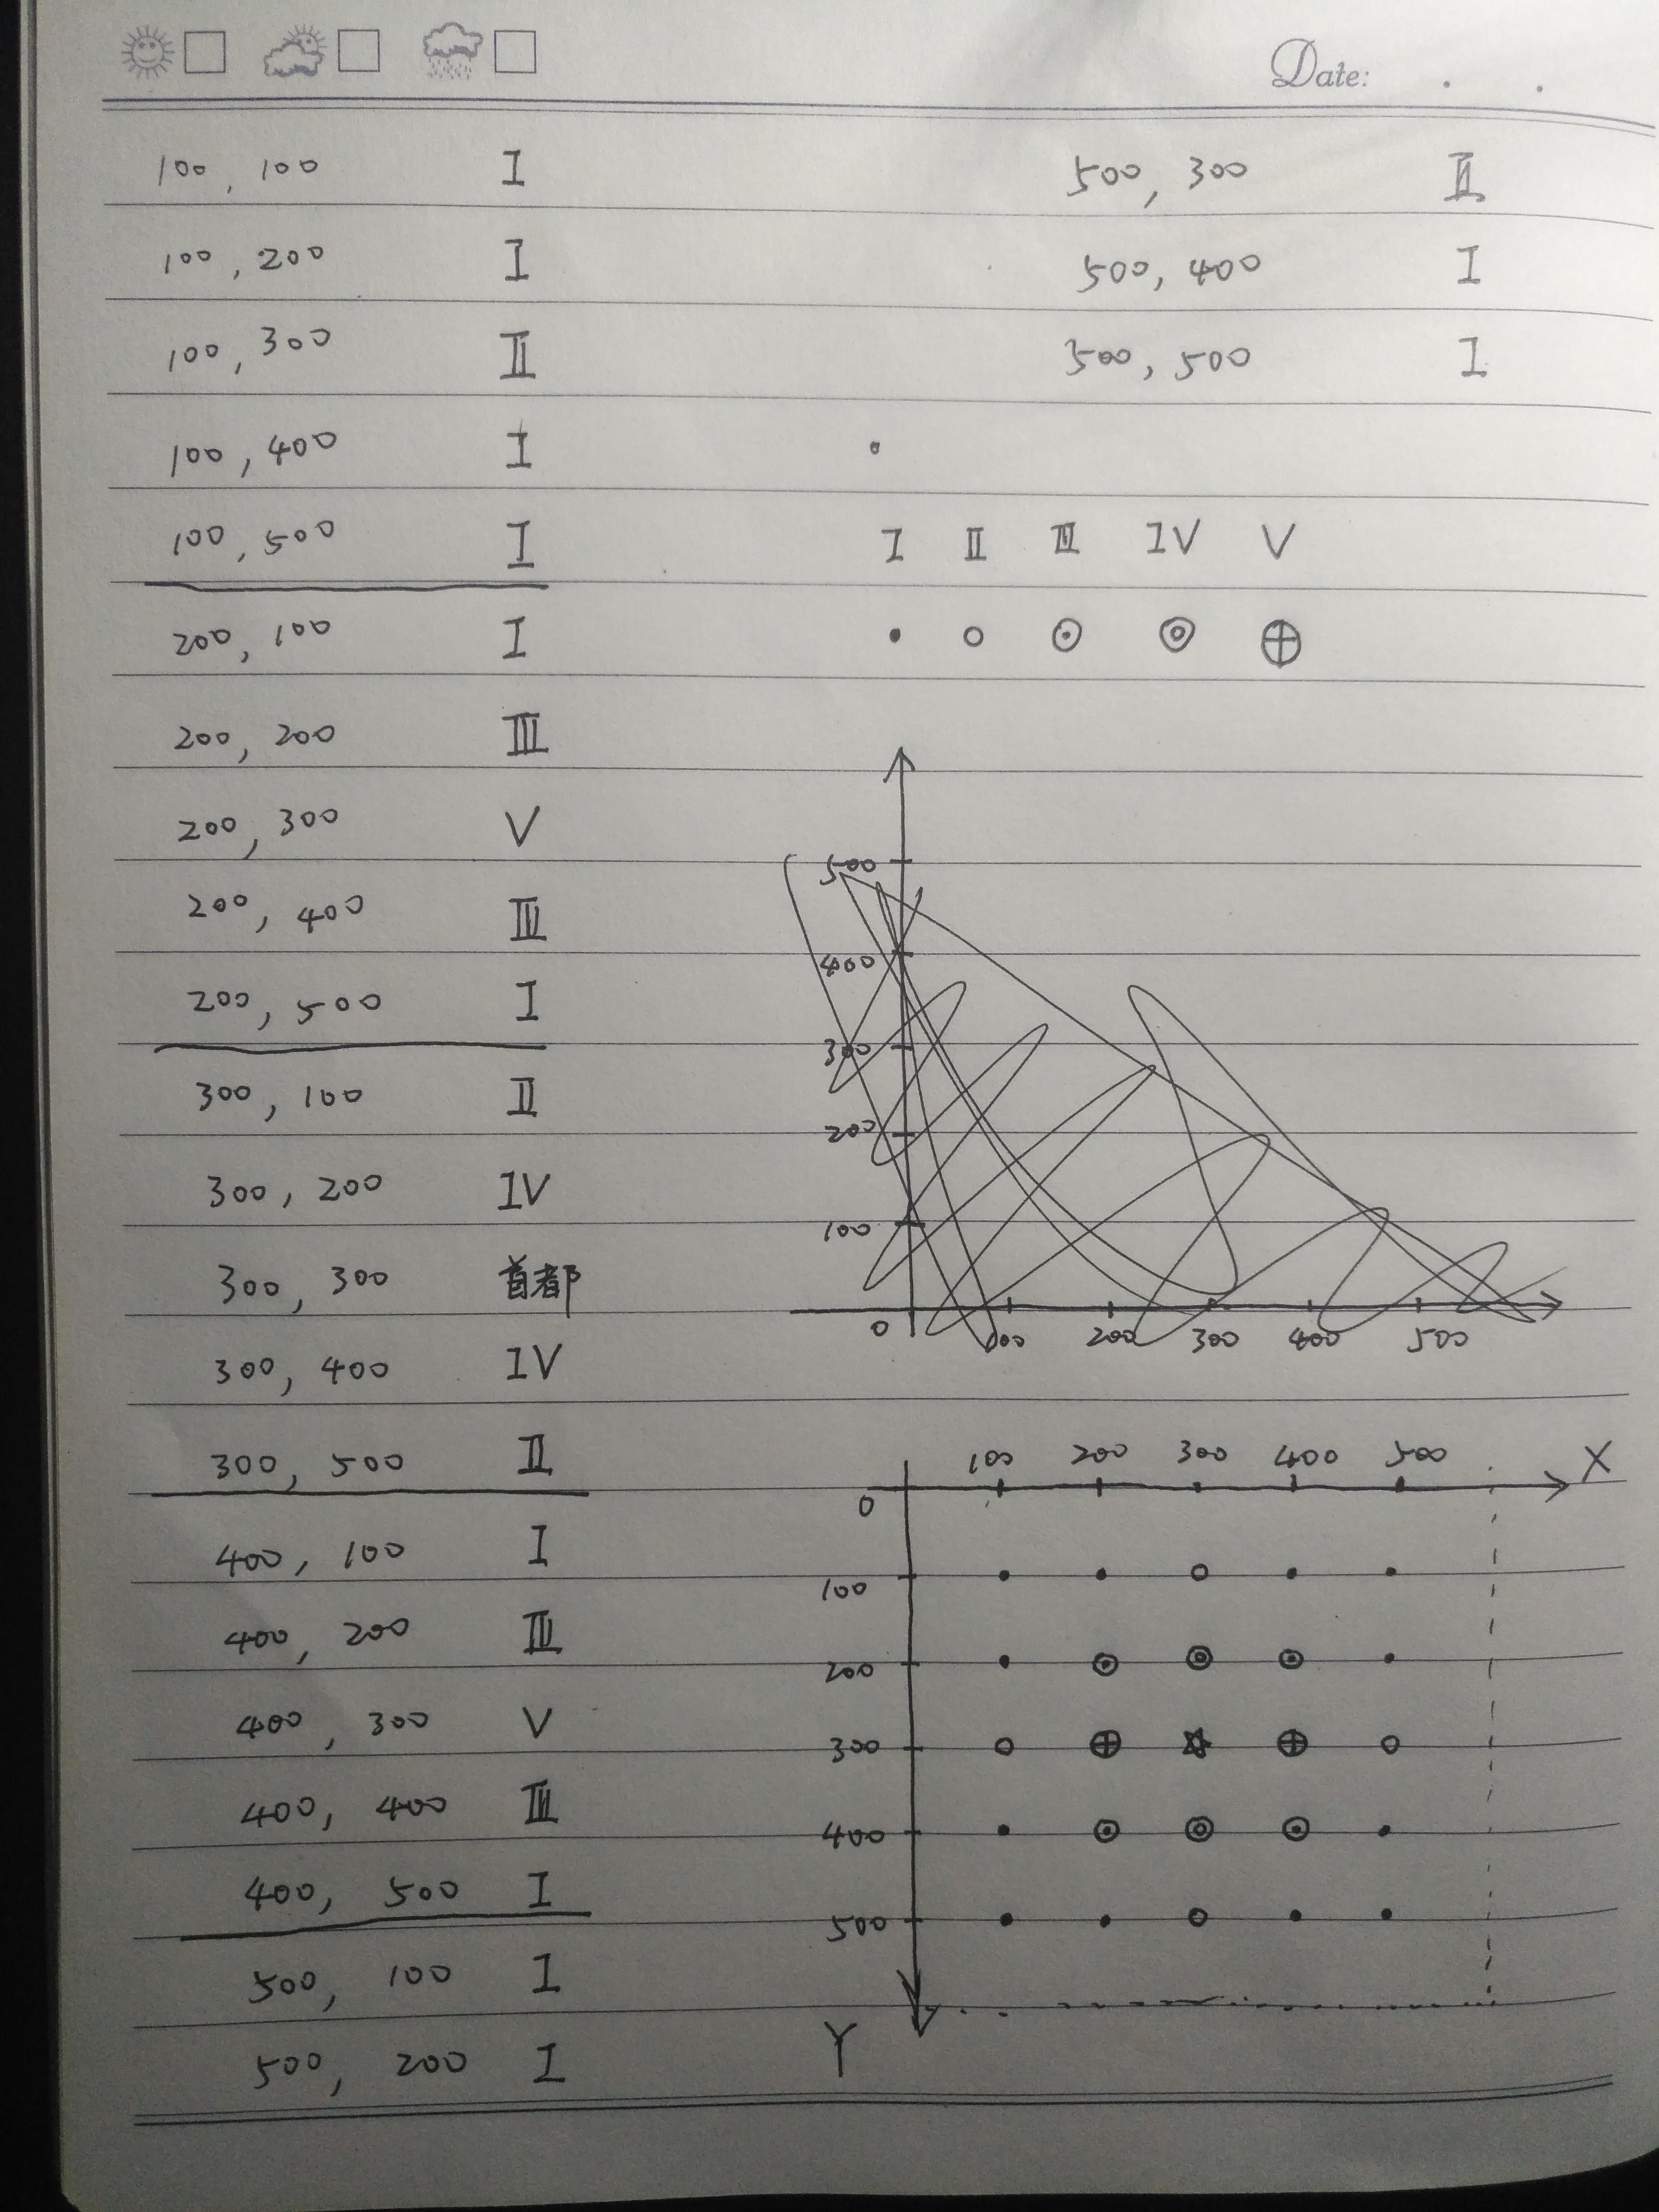 Date:
100, 100 I
100, 200 I
100, 300 II
100, 400 I
100, 500 I
200, 100 I
200, 200 III
200, 300 V
200, 400 III
200, 500 I
300, 100 II
300, 200 IV
300, 300 首都
300, 400 IV
300, 500 II
400, 100 I
400, 200 III
400, 300 V
400, 400 III
400, 500 I
500, 100 I
500, 200 I
500, 300 II
500, 400 I
500, 500 I
I II III IV V
500
400
300
200
100
0 100 200 300 400 500
100 200 300 400 500 X
0
100
200
300
400
500
Y